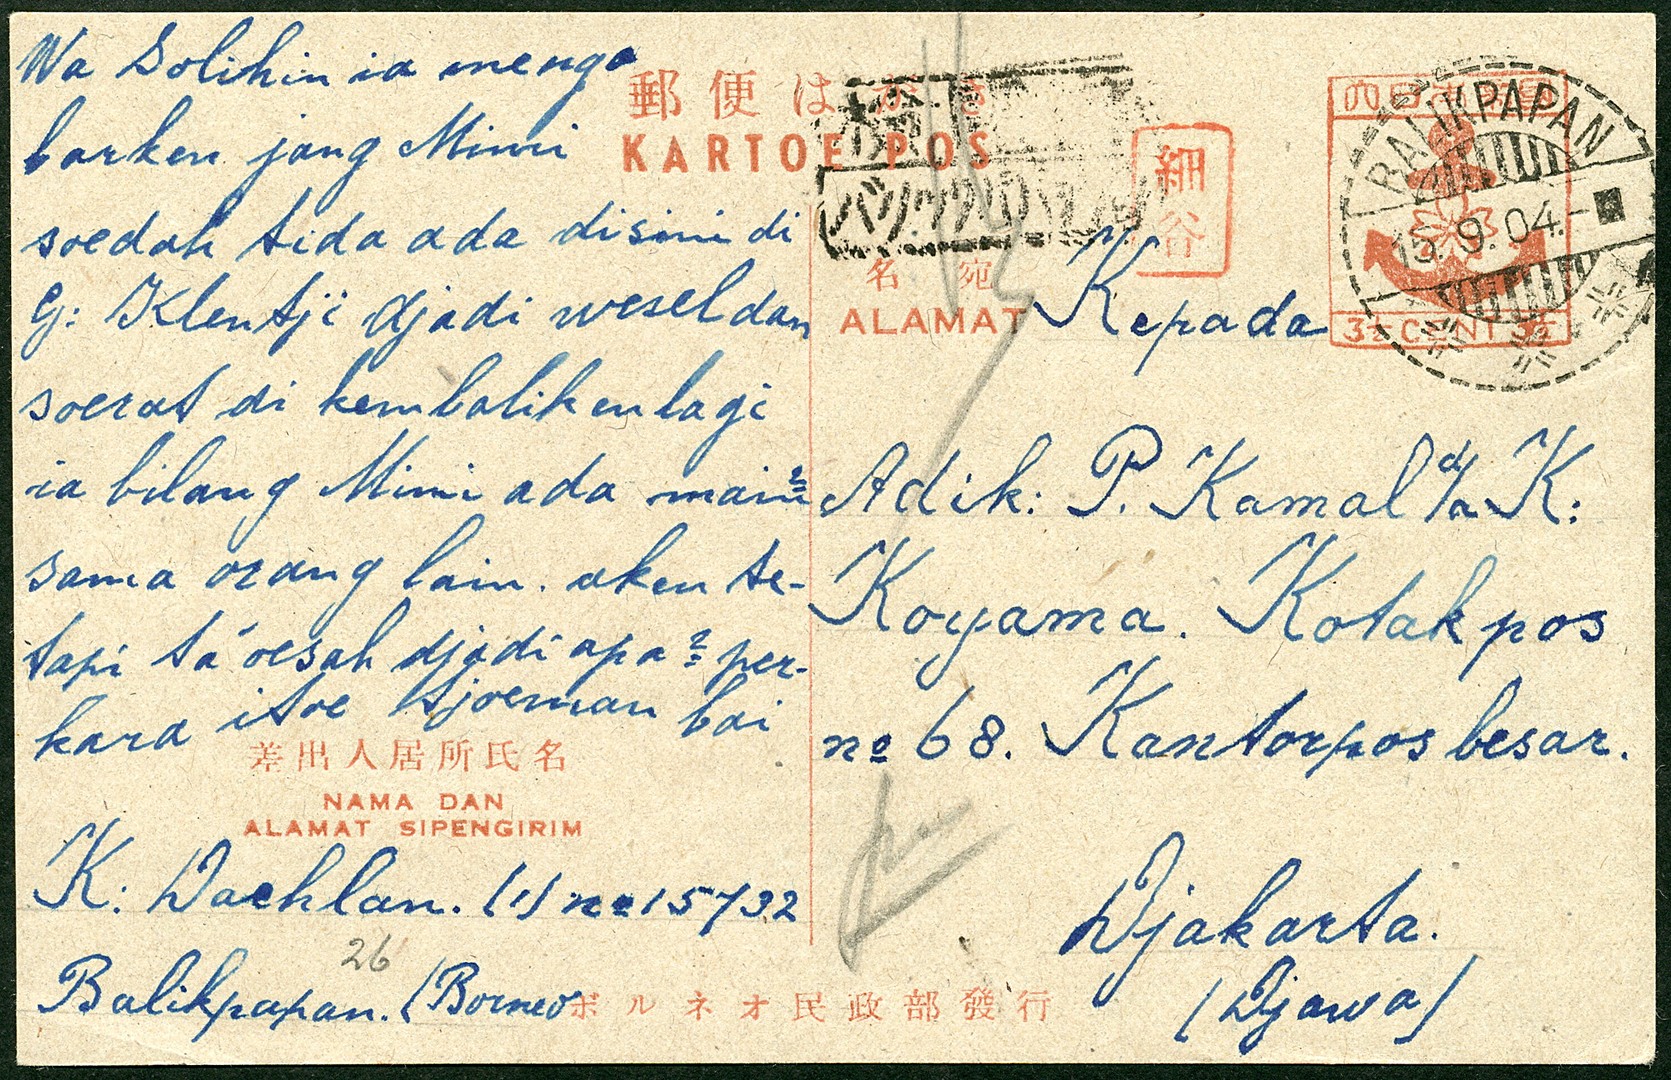 Wa Solihin ia menga
barken jang Mimi
soedah tida ada disini di
G: Klentji djadi wesel dan
soerat di kembaliken lagi
ia bilang Mimi ada main²
sama orang lain. aken te-
tapi ta' oesah djadi apa² per-
kara itoe tjoeman bai
差出人居所氏名
NAMA DAN
ALAMAT SIPENGIRIM
K: Dachlan. (1) no 15732
26
Balikpapan. (Borneo
郵便はがき
KARTOE POS
細谷
名宛
ALAMAT
BALIKPAPAN
15. 9. 04.-
3½ CENT 3½
Kepada
Adik: P. Kamal d/a K:
Koyama. Kotakpos
no 68. Kantorpos besar.
Djakarta.
(Djawa)
ボルネオ民政部發行